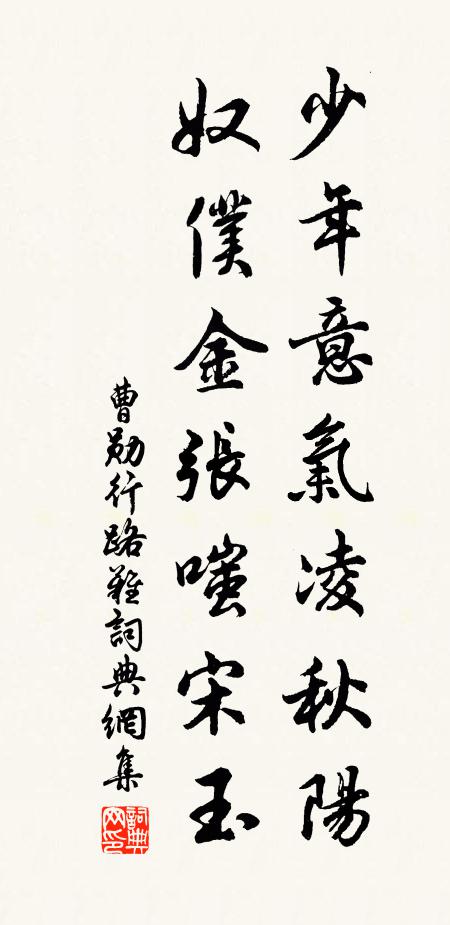 少年意氣凌秋陽
奴僕金張嗤宋玉
曹勛行路難詞典網集
詞典网印